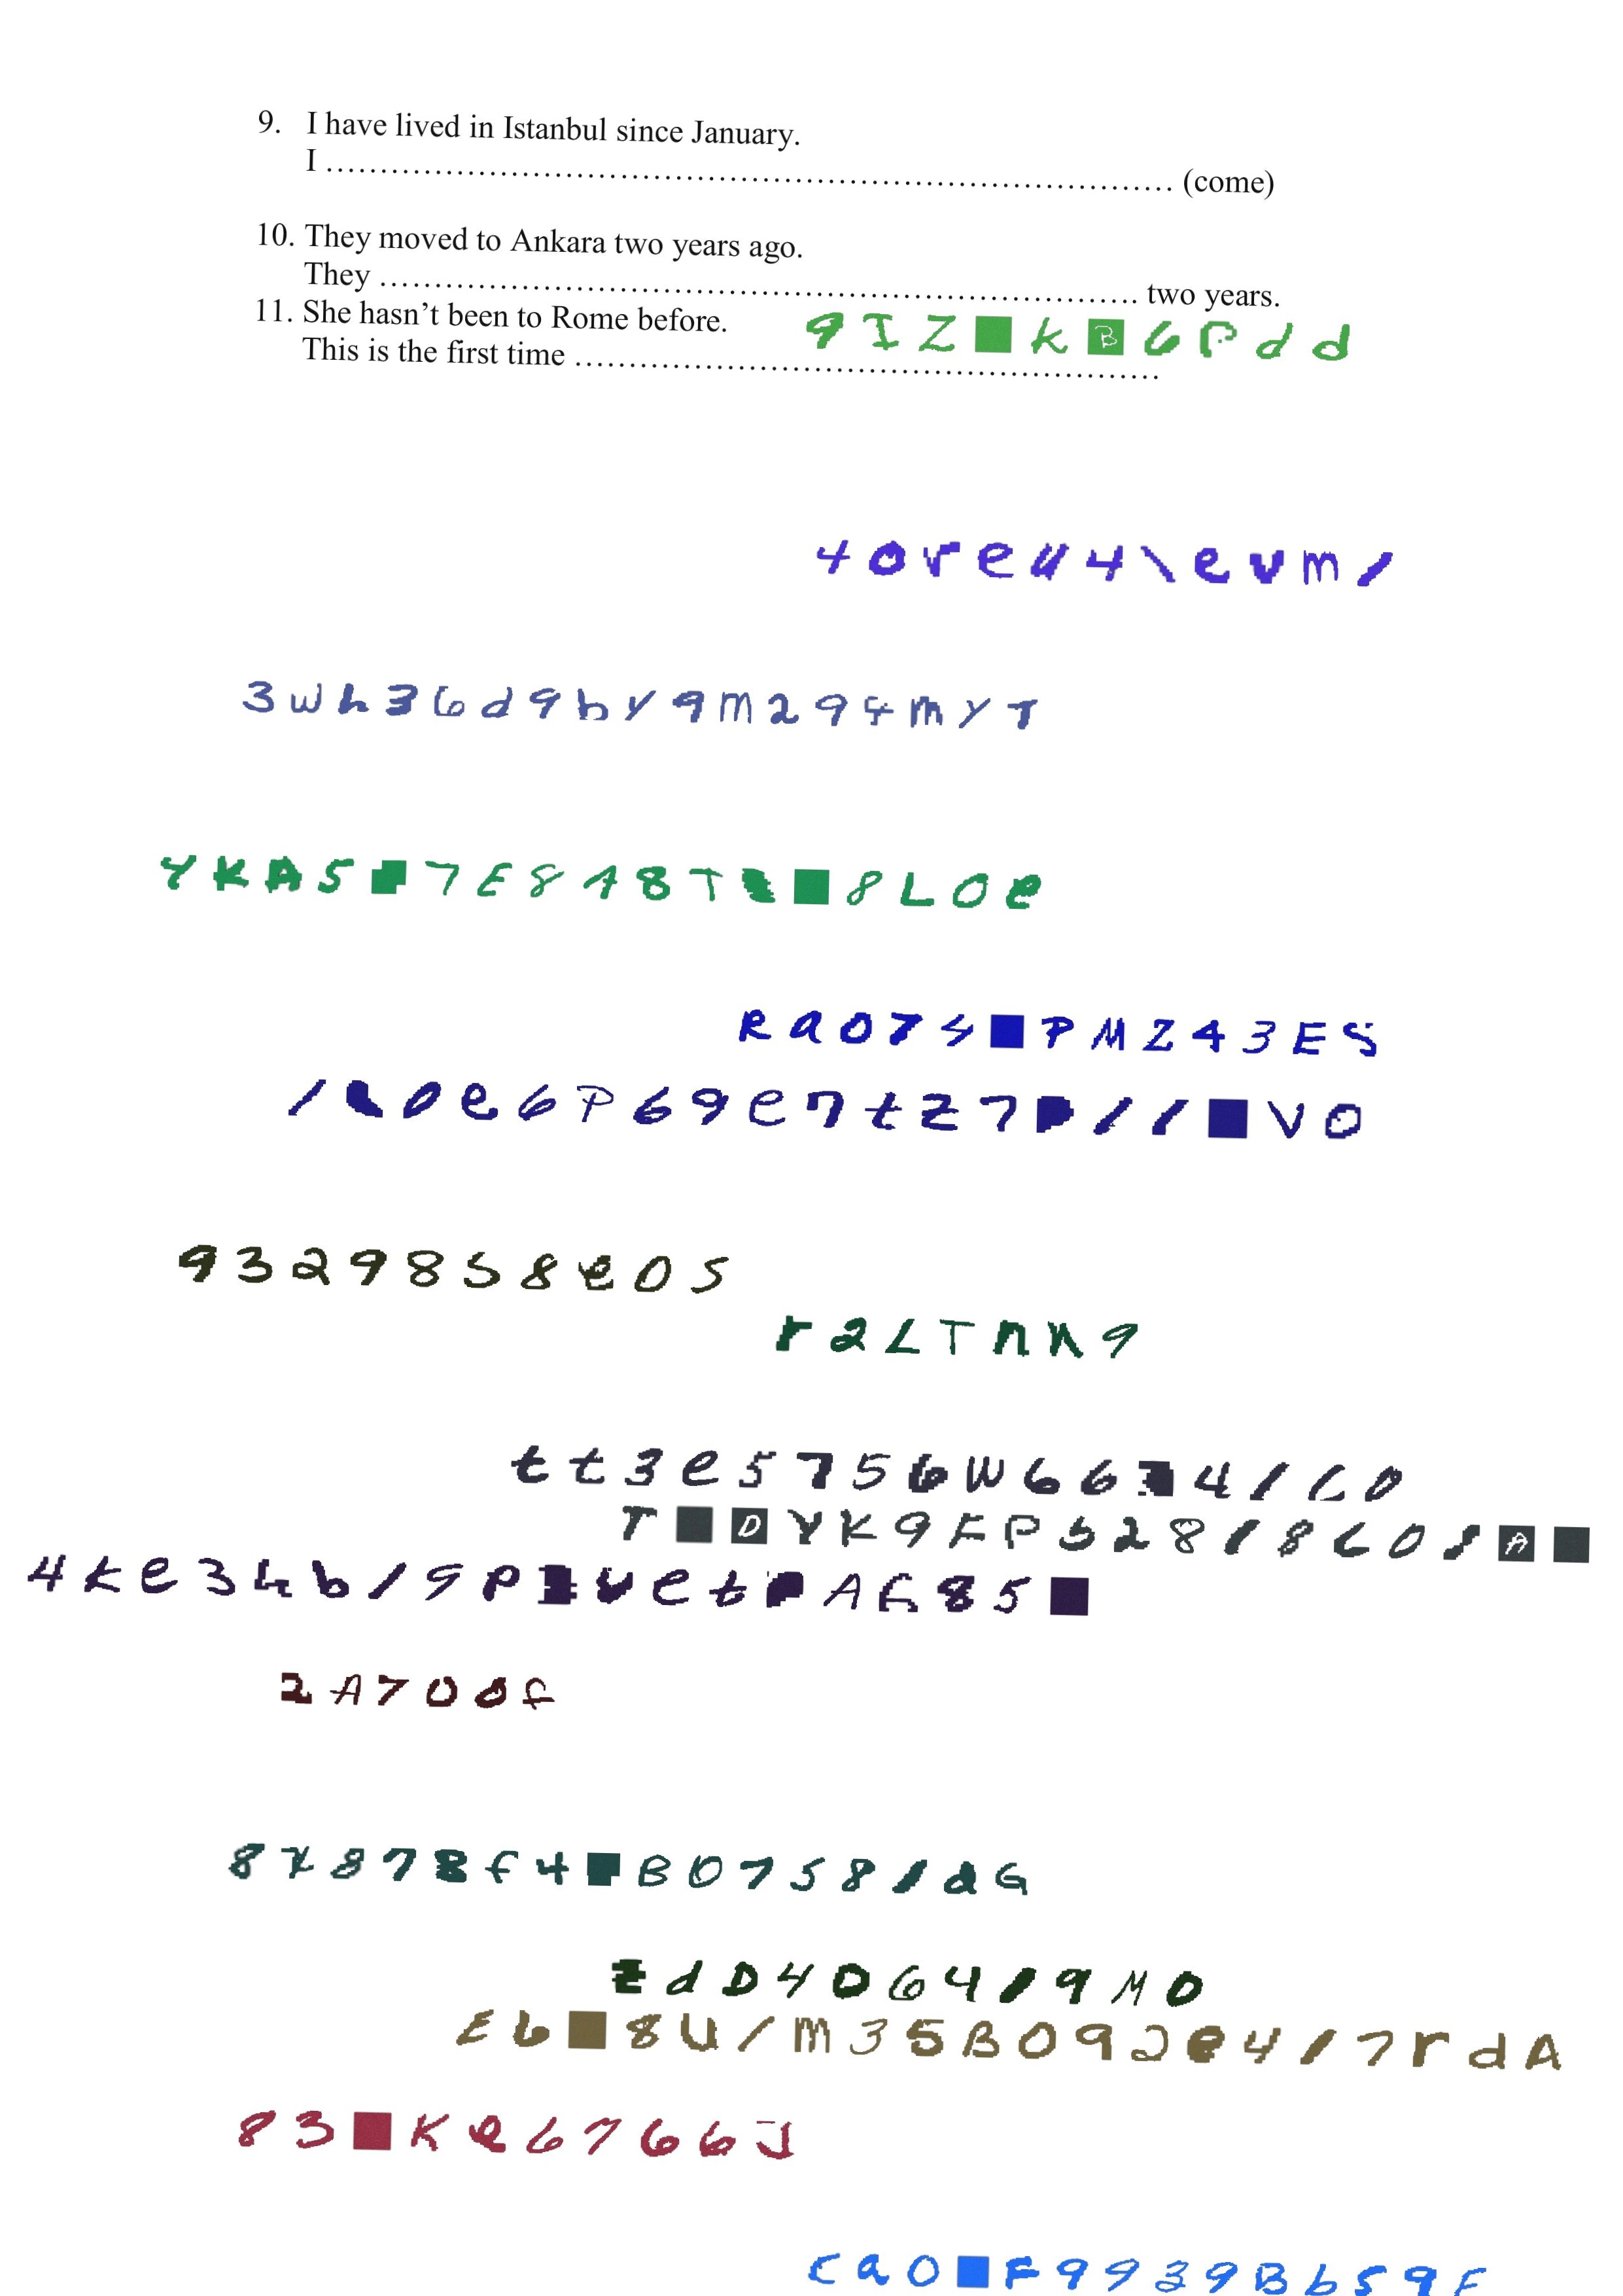 9. I have lived in Istanbul since January.
I ........................................................................... (come)
10. They moved to Ankara two years ago.
They ..................................................................... two years.
11. She hasn't been to Rome before.
9 I Z ■ K B 6 P d d
This is the first time .....................................................
4 0 r e u 4 \ e v m /
3 w h 3 6 d 9 h y 9 m 2 9 4 m y T
Y K A 5 7 E 8 A 8 T ■ 8 L 0 e
R a 0 7 4 ■ P M Z 4 3 E S
/ 0 e 6 P 6 9 e 7 t z 7 P / / ■ V 0
9 3 2 9 8 S 8 e 0 5
r 2 L T n n 9
t t 3 e 5 7 5 6 W 6 6 4 / L 0
T ■ D Y K 9 F P 5 2 8 / 8 L 0 / A ■
4 K e 3 h b / 9 P v e t A G 8 5 ■
2 A 7 0 0 f
8 7 8 7 8 f 4 B 0 7 5 8 / d G
Z d D 4 0 6 4 / 9 M 0
E 6 ■ 8 U / m 3 5 B 0 9 2 e 4 / 7 r d A
8 3 ■ K e 6 7 6 6 J
C a 0 ■ F 9 9 3 9 B b 5 9 F